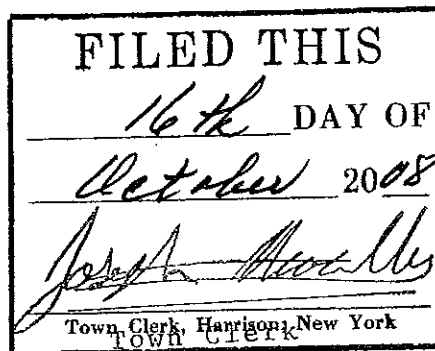 FILED THIS
16th DAY OF
October 2008
Joseph
Town Clerk, Harrison, New York
Town Clerk